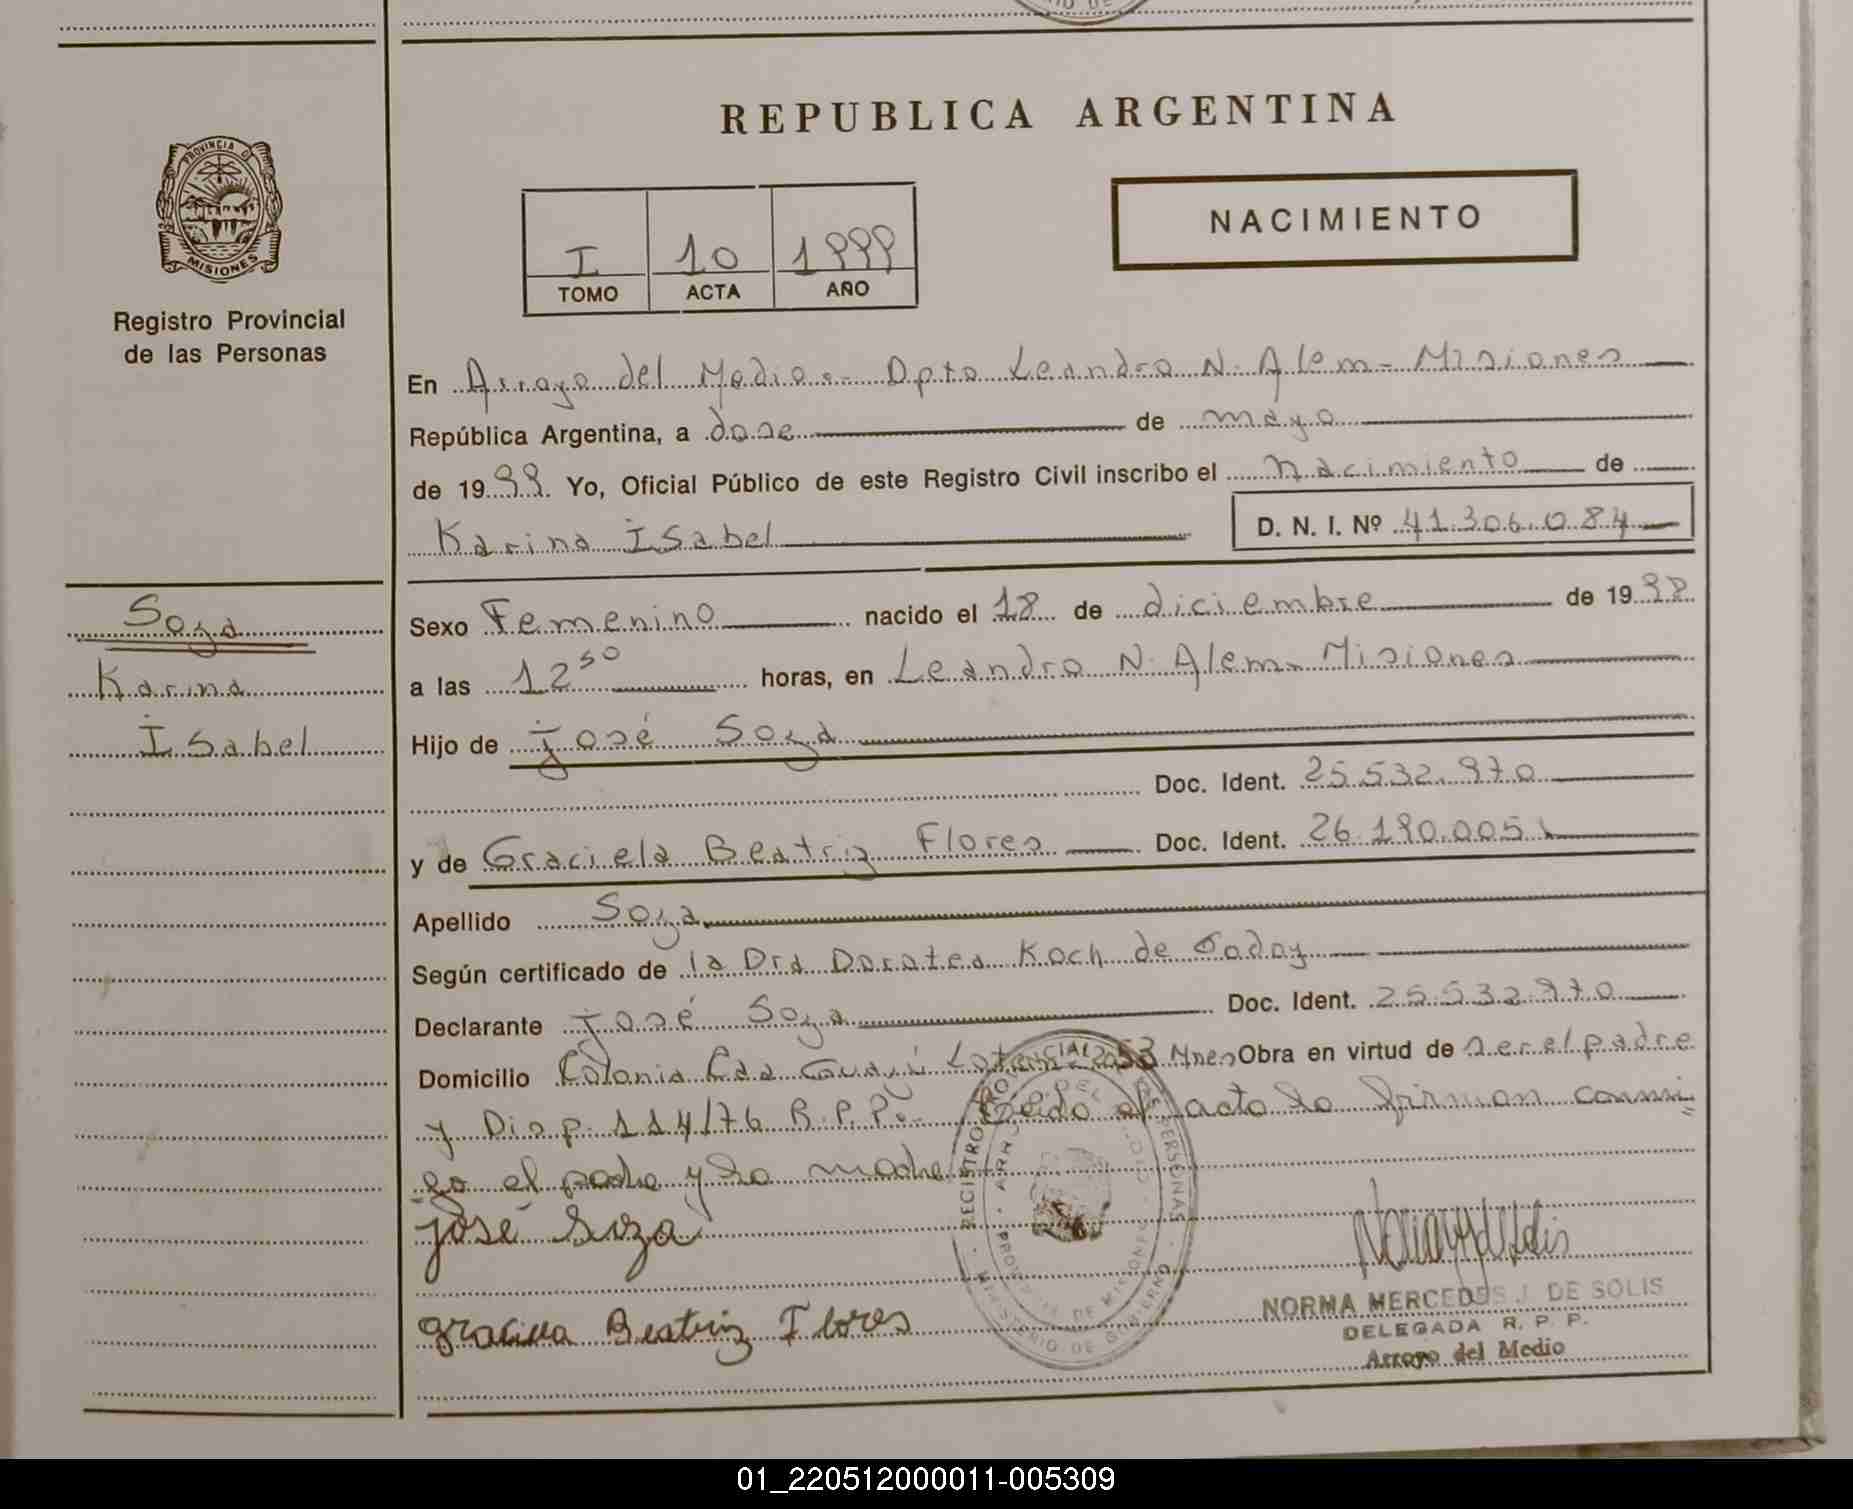 REPUBLICA ARGENTINA
PROVINCIA DE
MISIONES
Registro Provincial
de las Personas
I 10 1999
TOMO ACTA AÑO
NACIMIENTO
En Arroyo del Medio.- Dpto Leandro N. Alem - Misiones
República Argentina, a dose de mayo
de 1999. Yo, Oficial Público de este Registro Civil inscribo el nacimiento de
Karina Isabel D. N. I. Nº 41.306.084
Soza
Karina
Isabel
Sexo Femenino nacido el 18 de diciembre de 1998
a las 12 50 horas, en Leandro N. Alem - Misiones
Hijo de José Soza
Doc. Ident. 25.532.970
y de Graciela Beatriz Flores Doc. Ident. 26.190.005
Apellido Soza
Según certificado de la Dra Dorotea Koch de Godoy
Declarante José Soza Doc. Ident. 25.532.970
Domicilio Colonia Cda 253 Mnes Obra en virtud de ser el padre
y Disp. 114/76 R.P.P.- Leído el acta lo firman conmi=
go el padre y la madre
José Soza
Graciela Beatriz Flores
REGISTRO PROVINCIAL DE LAS PERSONAS
MINISTERIO DE GOBIERNO
PROVINCIA DE MISIONES
NORMA MERCEDES J. DE SOLIS
DELEGADA R. P. P.
Arroyo del Medio
01_220512000011-005309